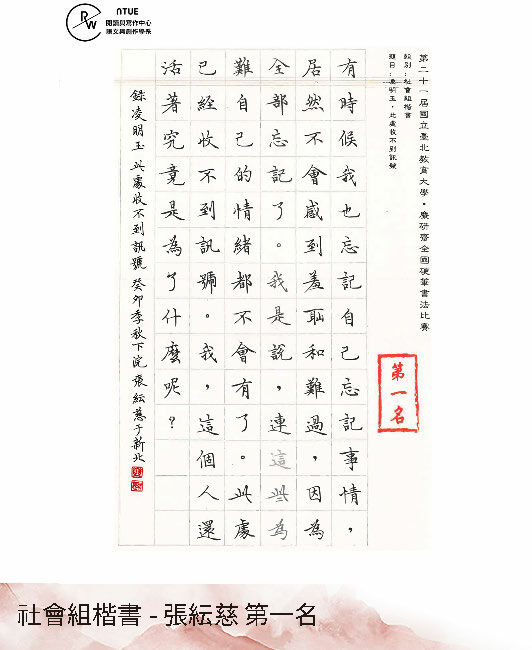 RW
NTUE
閱讀與寫作中心
語文與創作學系
第二十一屆國立臺北教育大學・麋研齋全國硬筆書法比賽
組別：社會組楷書
題目：凌明玉，此處收不到訊號
第一名
有時候我也忘記自己忘記事情，
居然不會感到羞耻和難過，因為
全部忘記了。我是說，連這些為
難自己的情緒都不會有了。此處
已經收不到訊號。我，這個人還
活著究竟是為了什麼呢？
錄凌明玉 此處收不到訊號 癸卯季秋下浣 張紜慈于新北
社會組楷書 - 張紜慈 第一名